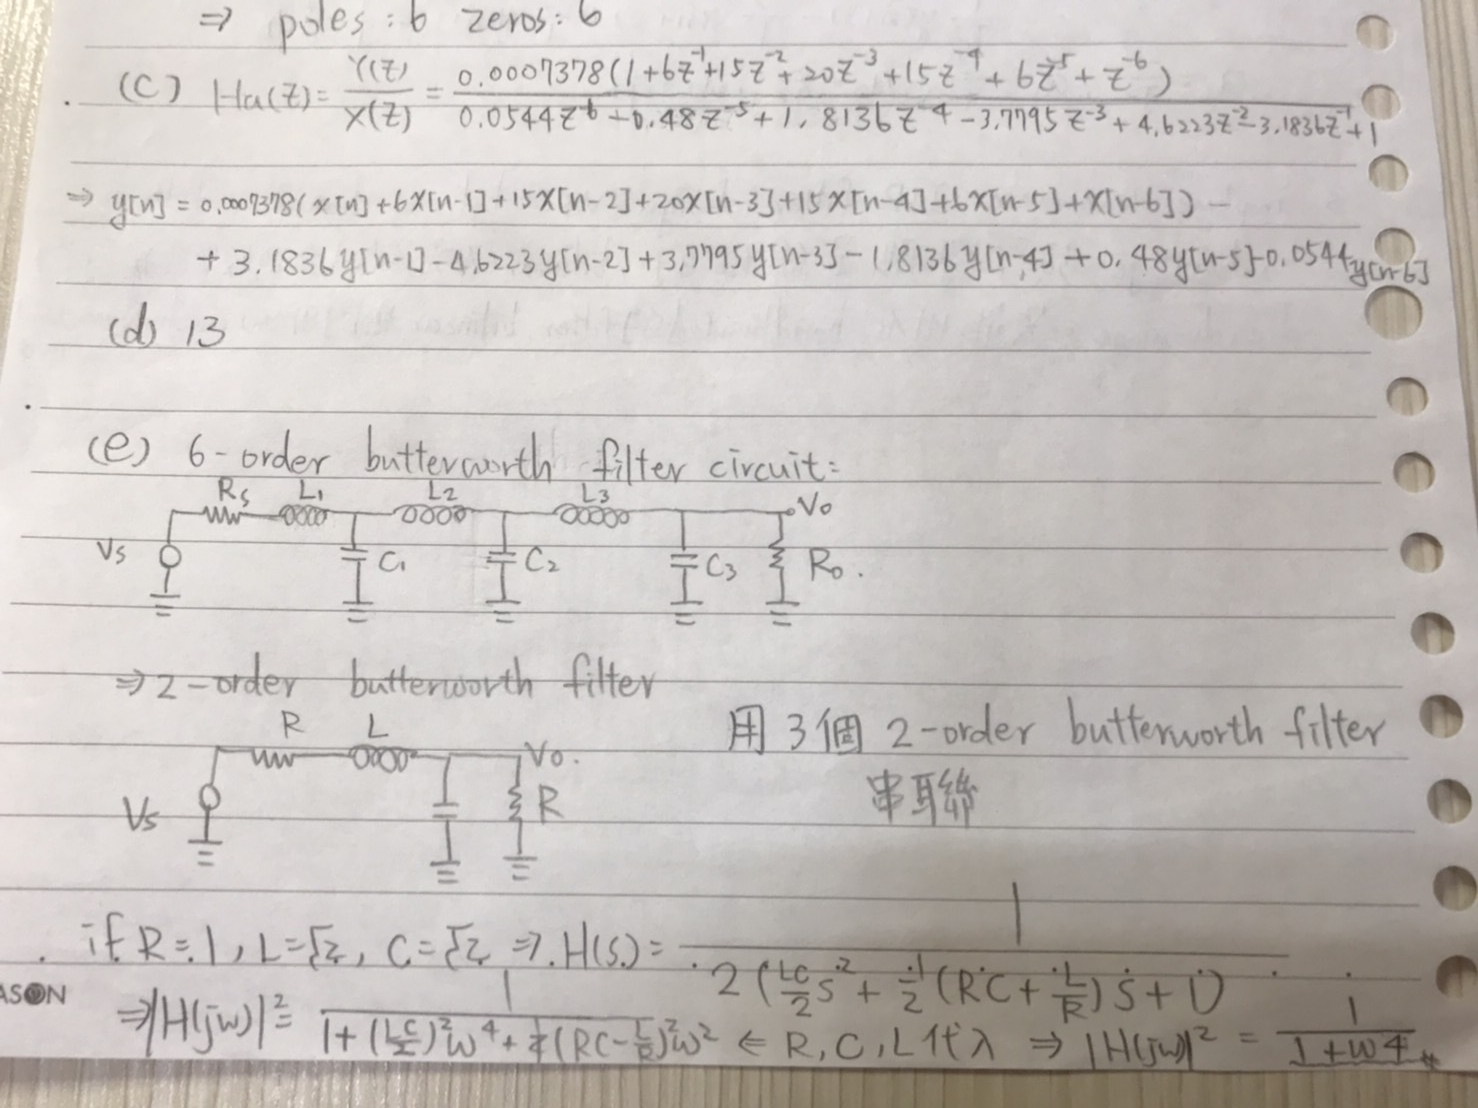 ⇒ poles : 6 zeros : 6
(c) Ha(z) = Y(z)/X(z) = 0.0007378(1+6z⁻¹+15z⁻²+20z⁻³+15z⁻⁴+6z⁻⁵+z⁻⁶) / 0.0544z⁻⁶-0.48z⁻⁵+1.8136z⁻⁴-3.7795z⁻³+4.6223z⁻²-3.1836z⁻¹+1
⇒ y[n] = 0.0007378(x[n]+6x[n-1]+15x[n-2]+20x[n-3]+15x[n-4]+6x[n-5]+x[n-6])
+3.1836y[n-1]-4.6223y[n-2]+3.7795y[n-3]-1.8136y[n-4]+0.48y[n-5]-0.0544y[n-6]
(d) 13
(e) 6-order butterworth filter circuit:
Rs L1 L2 L3 Vo
Vs C1 C2 C3 Ro.
⇒ 2-order butterworth filter
R L Vo.
Vs R
用3個 2-order butterworth filter
串聯
if R=1, L=√2, C=√2 ⇒ H(s) = 1 / 2(LC/2 s²+1/2(RC+L/R)s+1)
ASON
⇒|H(jw)|² = 1 / 1+(LC/2)²w⁴+1/4(RC-L/R)²w² ⇐ R, C, L代入 ⇒ |H(jw)|² = 1 / 1+w4 #